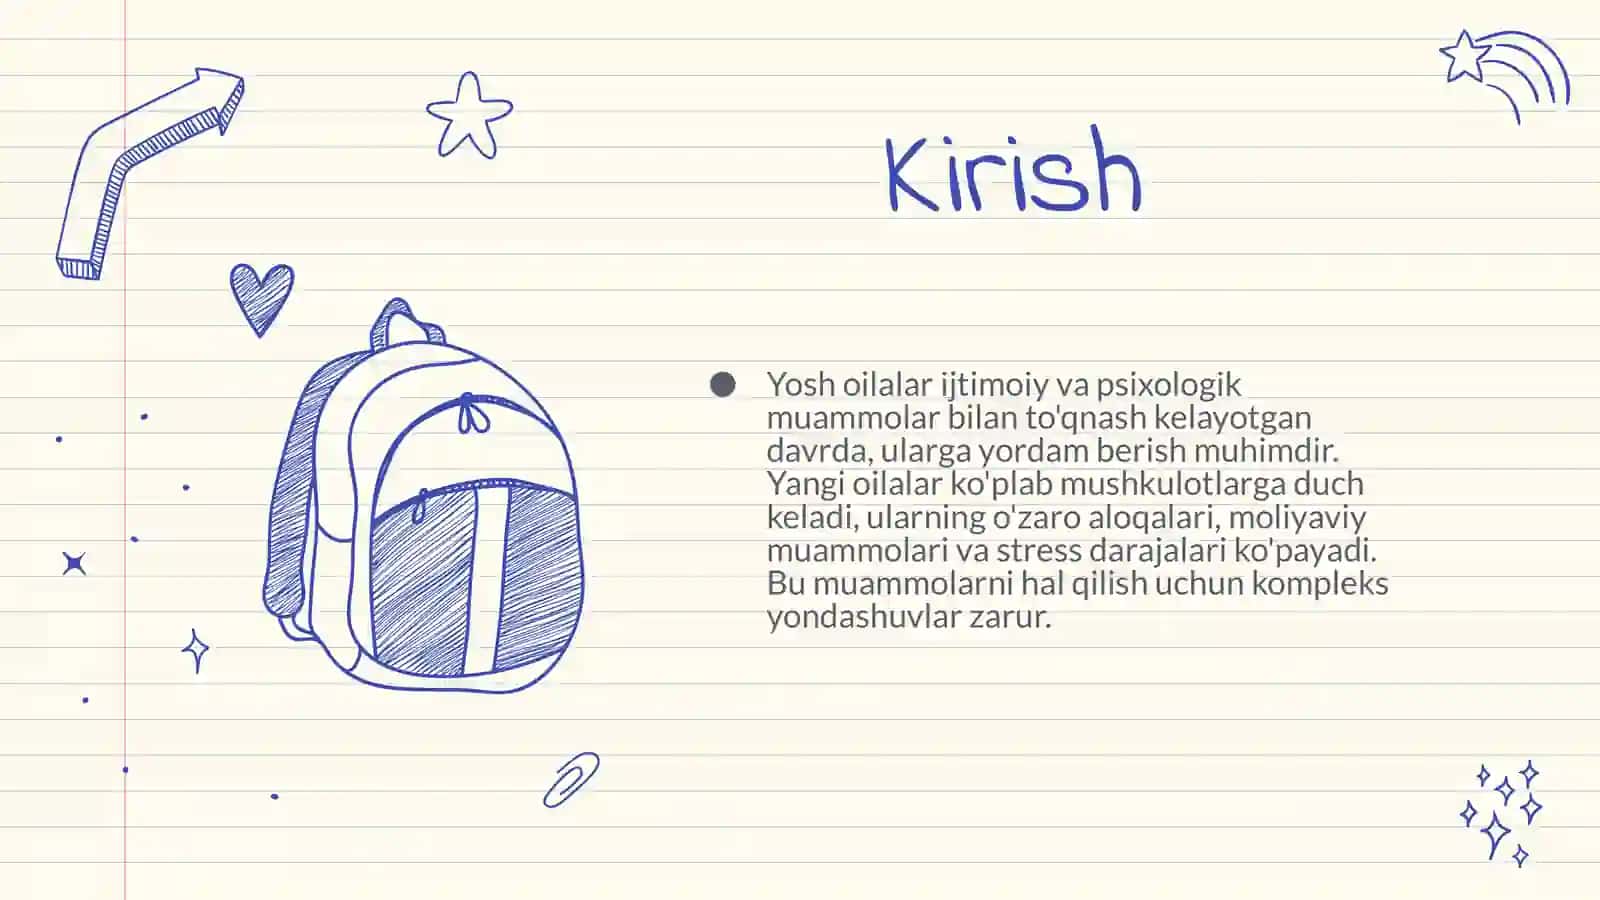 Kirish
Yosh oilalar ijtimoiy va psixologik
muammolar bilan to'qnash kelayotgan
davrda, ularga yordam berish muhimdir.
Yangi oilalar ko'plab mushkulotlarga duch
keladi, ularning o'zaro aloqalari, moliyaviy
muammolari va stress darajalari ko'payadi.
Bu muammolarni hal qilish uchun kompleks
yondashuvlar zarur.